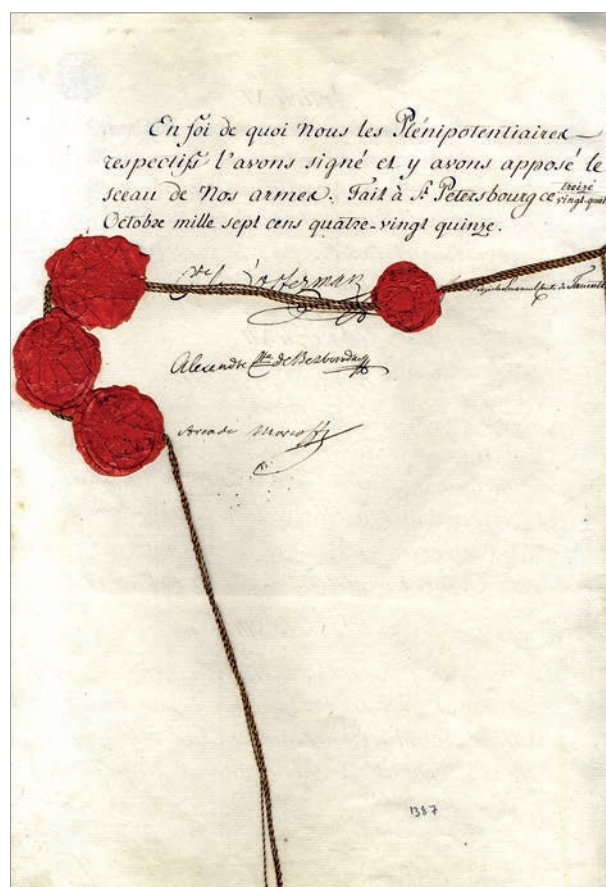 En foi de quoi Nous les Plénipotentiaires
respectifs l'avons signé et y avons apposé le
sceau de Nos armes. Fait à St. Petersbourg ce treize
vingt-quat
Octobre mille sept cens quatre-vingt quinze.
C'te d'Osterman
Alexandre Cte de Besborodko
Arcadi Morcoff
1387